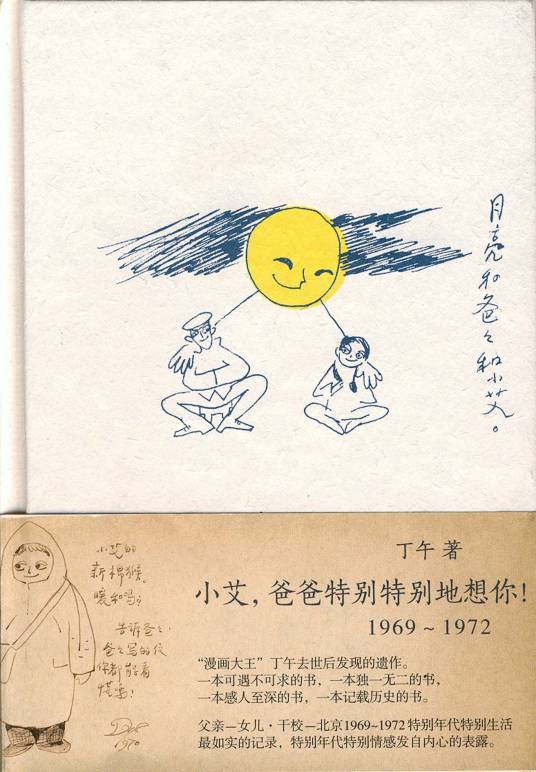 月亮和爸々和小艾。
丁午 著
小艾，爸爸特别特别地想你！
1969～1972
“漫画大王”丁午去世后发现的遗作。
一本可遇不可求的书，一本独一无二的书，
一本感人至深的书，一本记载历史的书。
父亲—女儿·干校—北京1969~1972特别年代特别生活
最如实的记录，特别年代特别情感发自内心的表露。
小艾的
新棉猴。
暖和吗？
告诉爸々，
爸々写的信
你都能看
1970